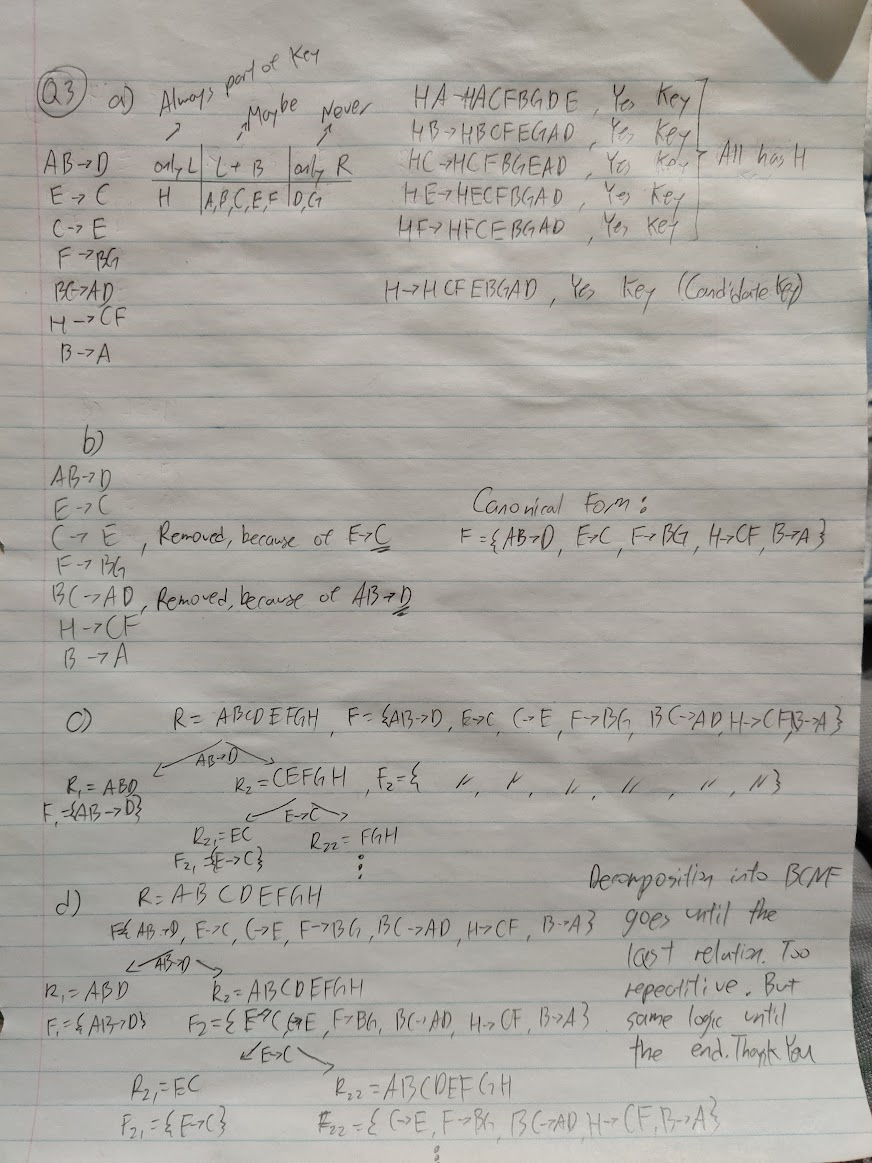 Q3 a) Always part of Key
Maybe
Never
AB→D
E→C
C→E
F→BG
BC→AD
H→CF
B→A
only L | L + B | only R
H | A,B,C,E,F | D,G
HA→HACFBGDE, Yes Key
HB→HBCFEGAD, Yes Key
HC→HCFBGEAD, Yes Key
HE→HECFBGAD, Yes Key
HF→HFCEBGAD, Yes Key
All has H
H→HCFEBGAD, Yes Key (Candidate Key)
b)
AB→D
E→C
C→E, Removed, because of E→C
F→BG
BC→AD, Removed, because of AB→D
H→CF
B→A
Canonical Form:
F={AB→D, E→C, F→BG, H→CF, B→A}
c) R= ABCDEFGH, F={AB→D, E→C, C→E, F→BG, BC→AD, H→CF, B→A}
AB→D
R1=ABD R2=CEFGH, F2={ " , " , " , " , " , " }
F1={AB→D}
E→C
R21=EC R22= FGH
F21={E→C} ⋮
d) R=ABCDEFGH
F={AB→D, E→C, C→E, F→BG, BC→AD, H→CF, B→A}
AB→D
R1=ABD R2=ABCDEFGH
F1={AB→D} F2={E→C, C→E, F→BG, BC→AD, H→CF, B→A}
E→C
R21=EC R22=ABCDEFGH
F21={E→C} F22={C→E, F→BG, BC→AD, H→CF, B→A}
⋮
Decomposition into BCNF
goes until the
last relation. Too
repetitive. But
same logic until
the end. Thank You